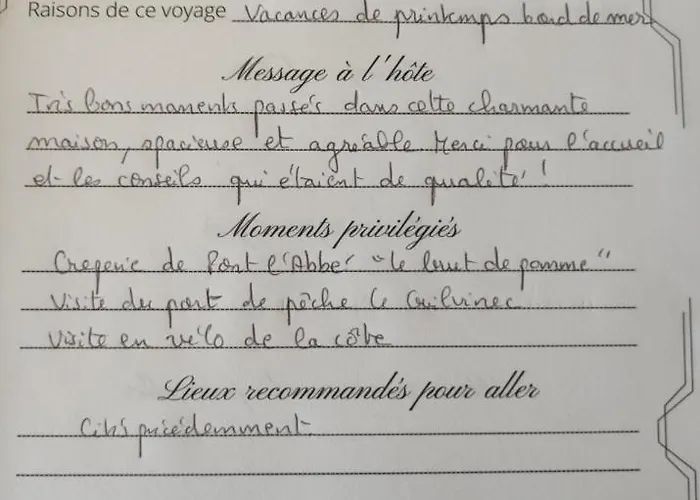 Raisons de ce voyage Vacances de printemps bord de mer
Message à l'hôte
Très bons moments passés dans cette charmante
maison, spacieuse et agréable Merci pour l'accueil
et les conseils qui étaient de qualité !
Moments privilégiés
Creperie de Pont l'Abbé "le bout de pomme"
Visite du port de pêche Le Guilvinec
Visite en vélo de la côte
Lieux recommandés pour aller
Cités précédemment